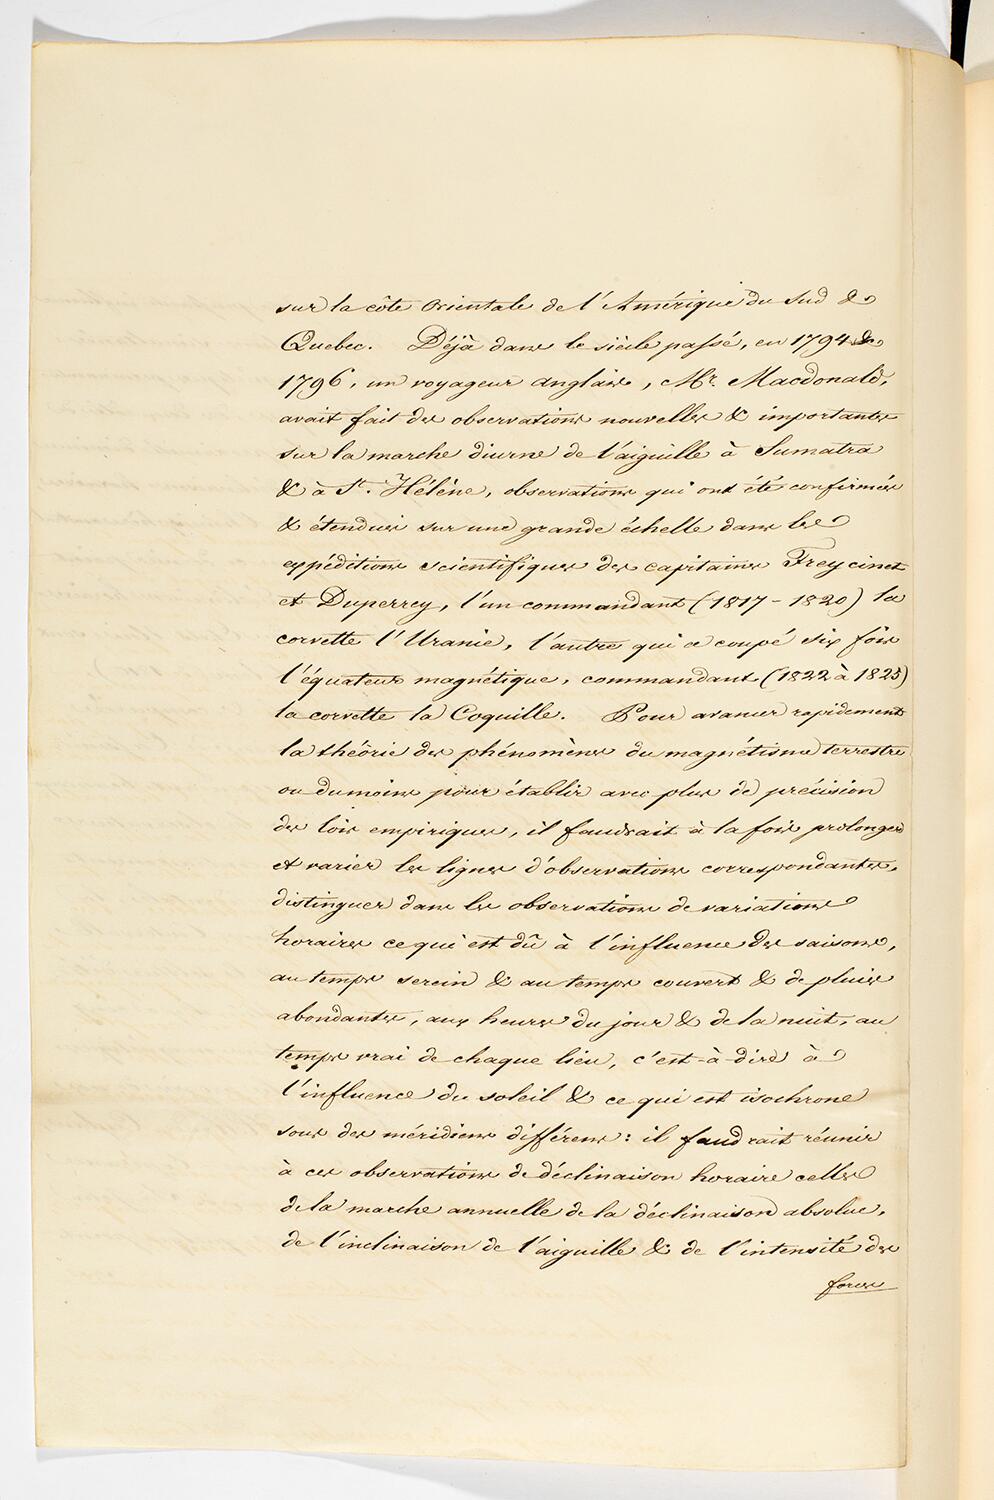 sur la côte Orientale de l'Amérique du Sud &
Quebec. Déjà dans le siècle passé, en 1794 &
1796, un voyageur anglais, Mr. Macdonald,
avait fait des observations nouvelles & importantes
sur la marche diurne de l'aiguille à Sumatra
& à St. Hélène, observations qui ont été confirmées
& étendues sur une grande échelle dans les
expéditions scientifiques des capitaines Freycinet
et Duperrey, l'un commandant (1817 - 1820) la
corvette l'Uranie, l'autre qui a coupé six fois
l'équateur magnétique, commandant (1822 à 1825)
la corvette la Coquille. Pour avancer rapidement
la théorie des phénomènes du magnétisme terrestre
ou du moins pour établir avec plus de précision
des lois empiriques, il faudrait à la fois prolonger
et varier les lignes d'observations correspondantes,
distinguer dans les observations de variations
horaires ce qui est dû à l'influence des saisons,
au temps serein & au temps couvert & de pluies
abondantes, aux heures du jour & de la nuit, au
temps vrai de chaque lieu, c'est-à-dire à
l'influence du soleil & ce qui est isochrone
sous des méridiens différens: il faudrait réunir
à ces observations de déclinaison horaire celles
de la marche annuelle de la déclinaison absolue,
de l'inclinaison de l'aiguille & de l'intensité des
forces